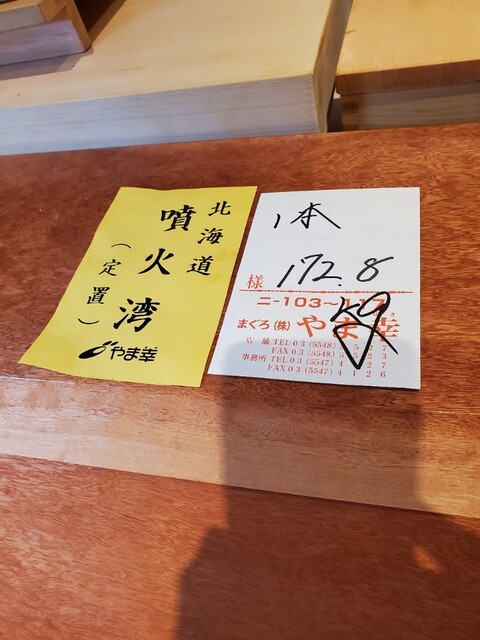 北海道
噴火湾
(定置)
やま幸
1本
様 172.8
ニ-103~117
まぐろ(株) やま幸
店舗 TEL 03 (5548)
FAX 03 (5548) 5523
事務所 TEL 03 (5547) 4127
FAX 03 (5547) 4126